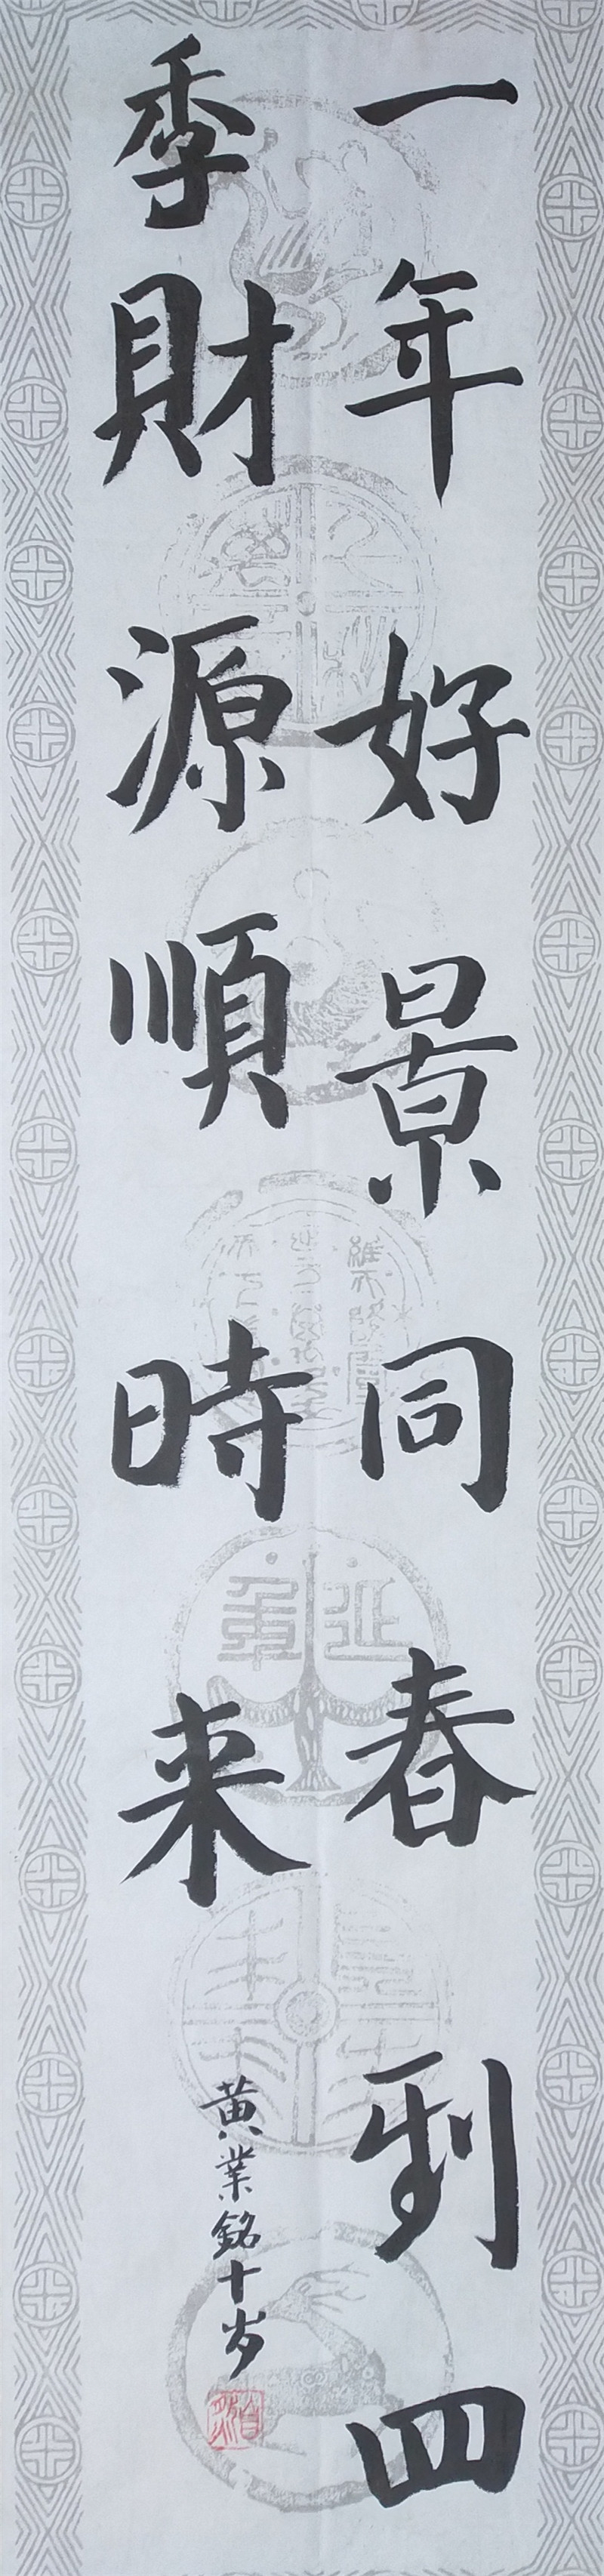 一年好景同春到四
季財源順時来
黄業銘十岁